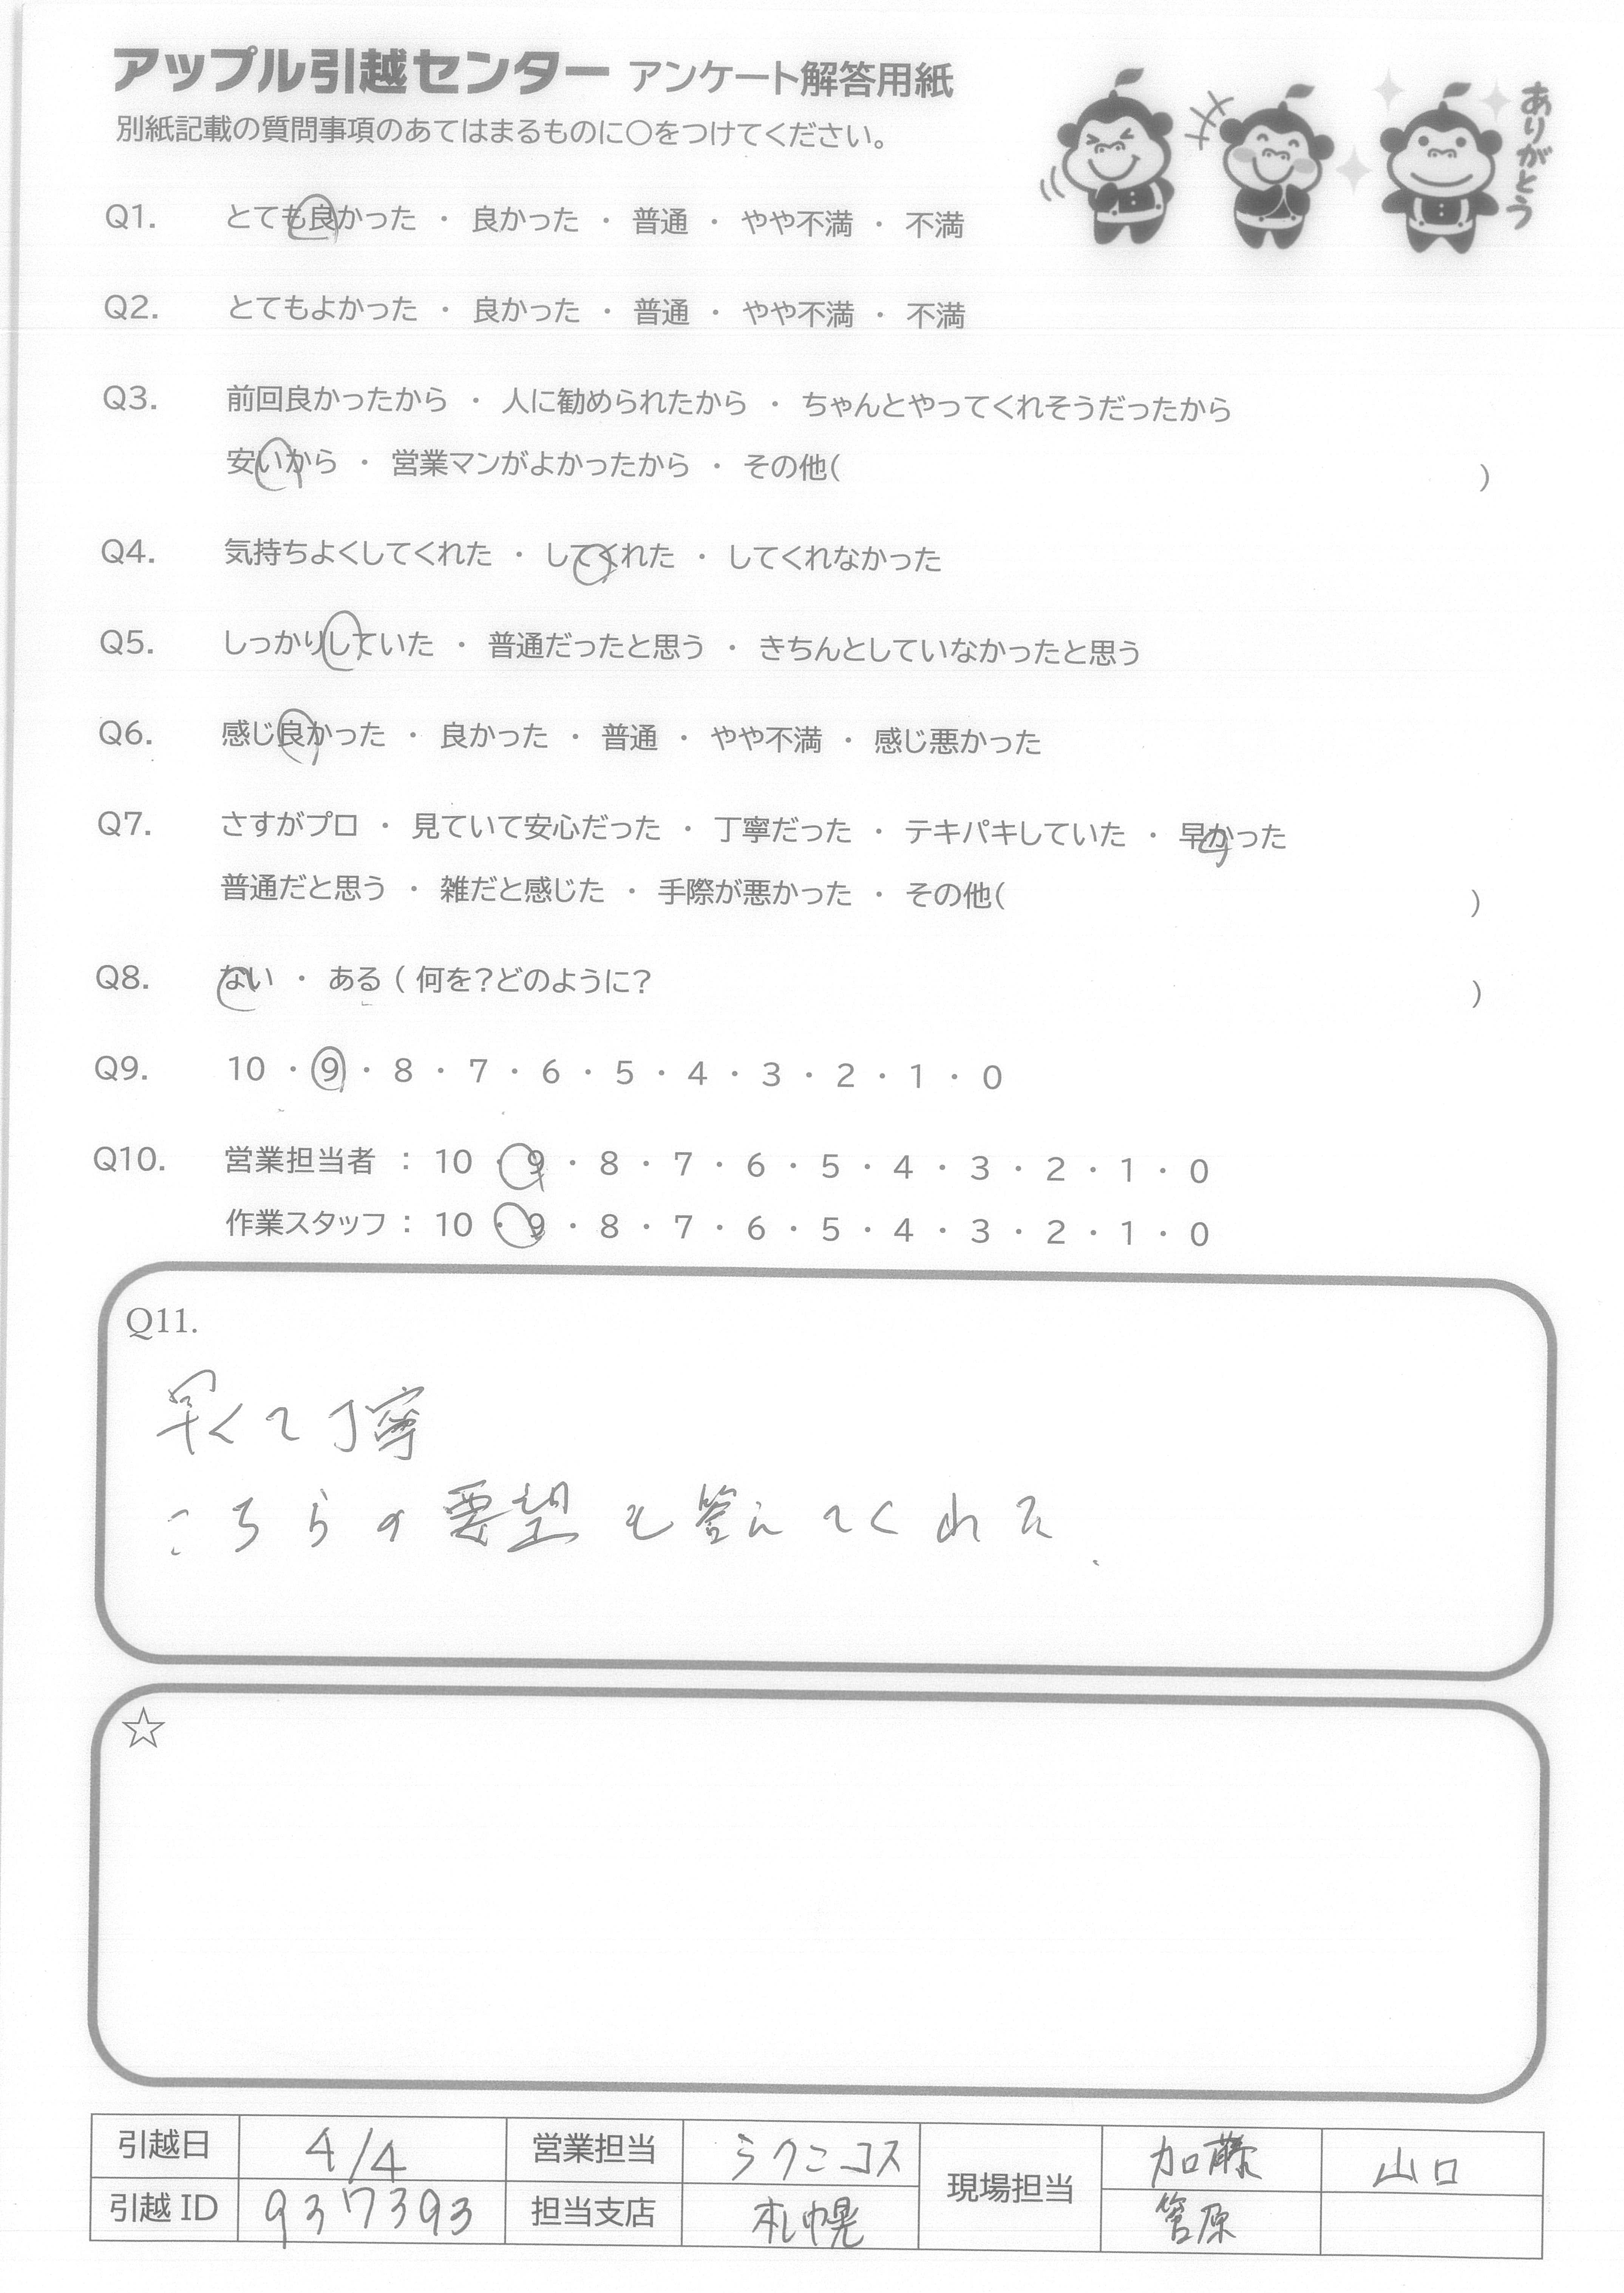 アップル引越センター アンケート解答用紙
別紙記載の質問事項のあてはまるものに○をつけてください。
ありがとう
Q1. とても良かった ・ 良かった ・ 普通 ・ やや不満 ・ 不満
Q2. とてもよかった ・ 良かった ・ 普通 ・ やや不満 ・ 不満
Q3. 前回良かったから ・ 人に勧められたから ・ ちゃんとやってくれそうだったから
安いから ・ 営業マンがよかったから ・ その他( )
Q4. 気持ちよくしてくれた ・ してくれた ・ してくれなかった
Q5. しっかりしていた ・ 普通だったと思う ・ きちんとしていなかったと思う
Q6. 感じ良かった ・ 良かった ・ 普通 ・ やや不満 ・ 感じ悪かった
Q7. さすがプロ ・ 見ていて安心だった ・ 丁寧だった ・ テキパキしていた ・ 早かった
普通だと思う ・ 雑だと感じた ・ 手際が悪かった ・ その他( )
Q8. ない ・ ある ( 何を?どのように? )
Q9. 10 ・ 9 ・ 8 ・ 7 ・ 6 ・ 5 ・ 4 ・ 3 ・ 2 ・ 1 ・ 0
Q10. 営業担当者 : 10 ・ 9 ・ 8 ・ 7 ・ 6 ・ 5 ・ 4 ・ 3 ・ 2 ・ 1 ・ 0
作業スタッフ : 10 ・ 9 ・ 8 ・ 7 ・ 6 ・ 5 ・ 4 ・ 3 ・ 2 ・ 1 ・ 0
Q11.
早くて丁寧
こちらの要望も答えてくれた.
☆
引越日 4/4 営業担当 ラクニコス 現場担当 加藤 山口
引越 ID 937393 担当支店 札幌 菅原